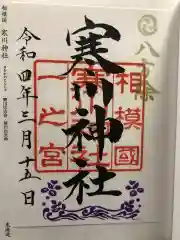 八方除
寒川神社
相模國
一之宮
令和四年三月十五日
相模国 寒川神社